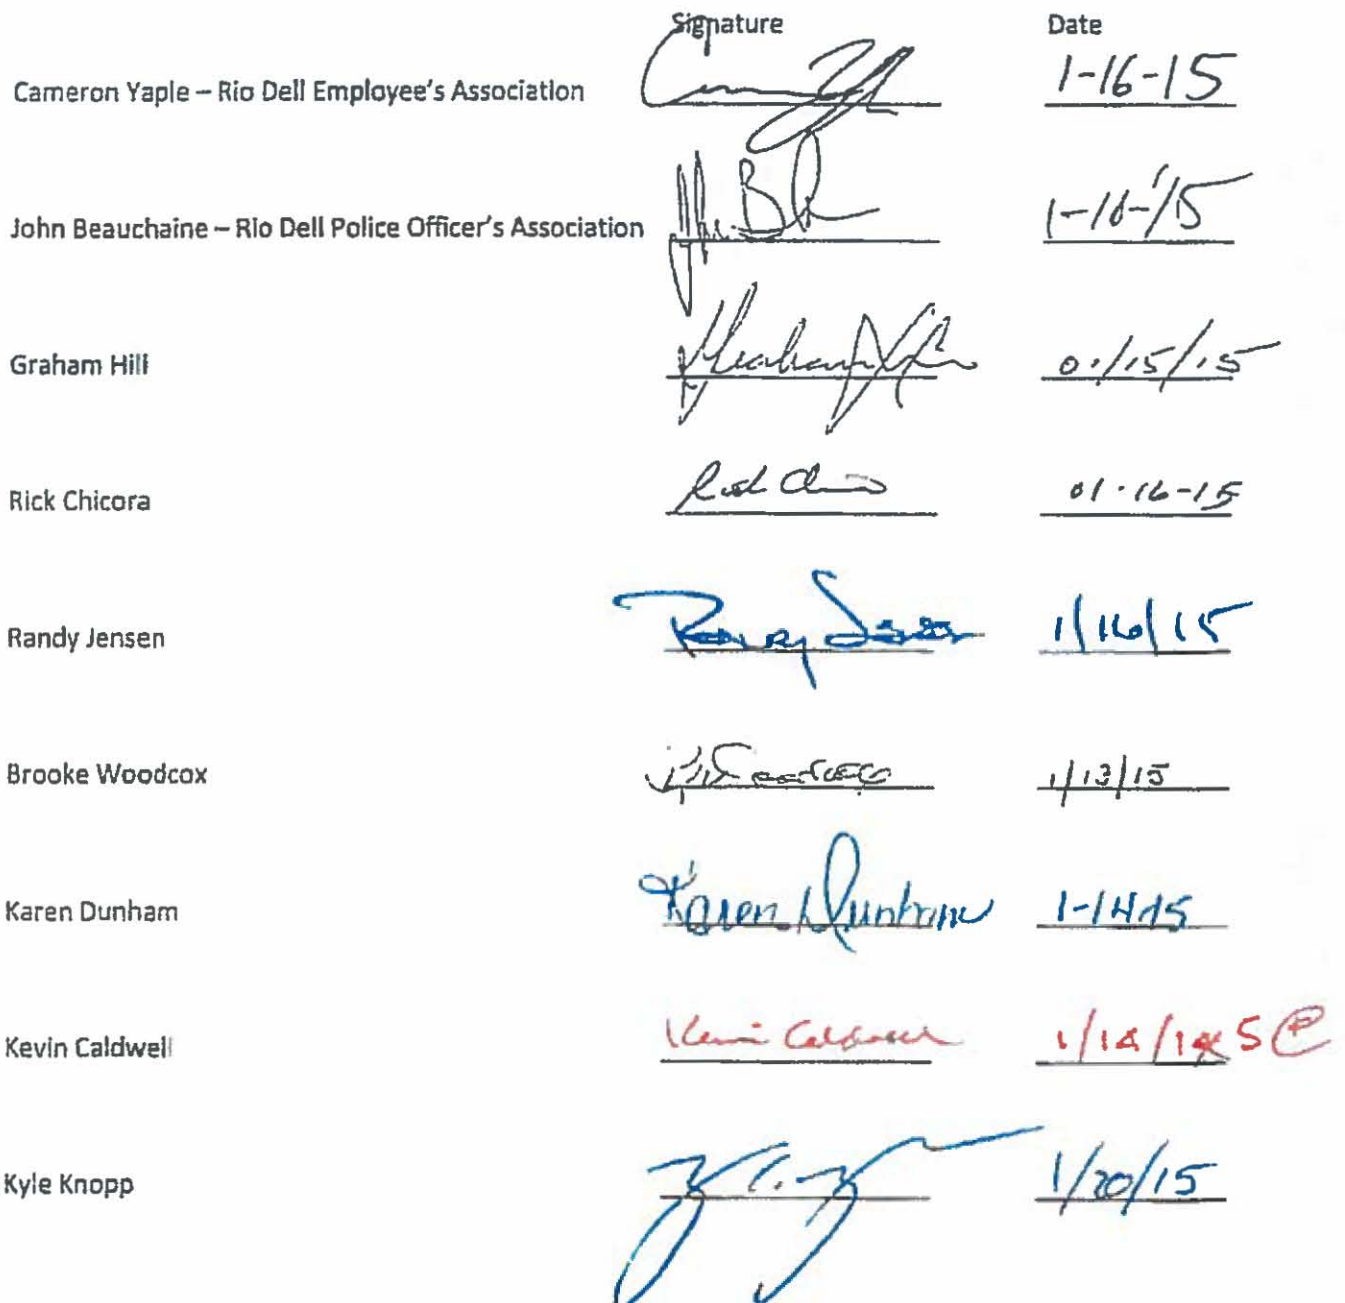 Signature Date
Cameron Yaple – Rio Dell Employee's Association 1-16-15
John Beauchaine – Rio Dell Police Officer's Association
Graham Hill Graham Hill 01/15/15
Rick Chicora Rick 01-16-15
Randy Jensen Randy Jensen 1/16/15
Brooke Woodcox B Woodcox 1/13/15
Karen Dunham Karen Dunham 1-14-15
Kevin Caldwell Kevin Caldwell 1/14/14 5
Kyle Knopp 1/20/15